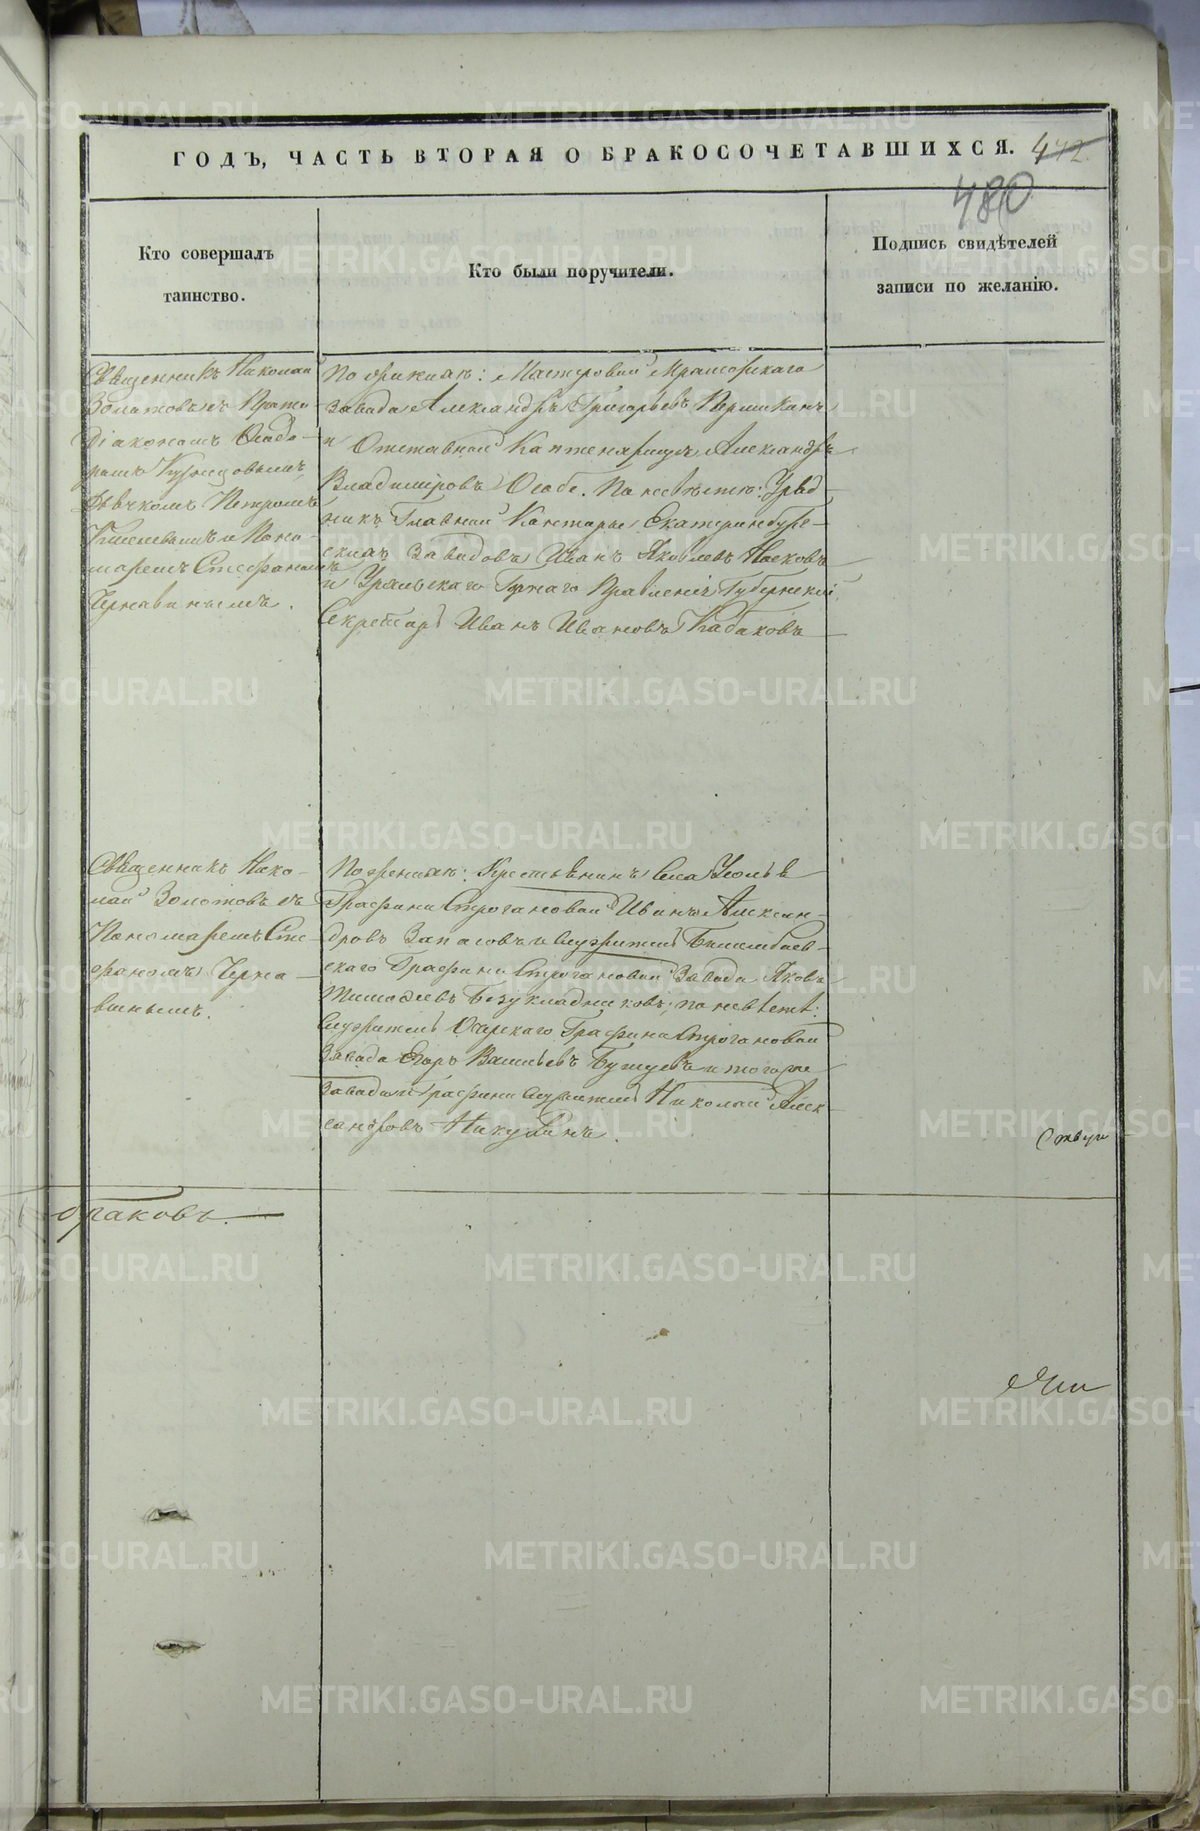 ГОДЪ, ЧАСТЬ ВТОРАЯ О БРАКОСОЧЕТАВШИХСЯ. 442.
480
Кто совершалъ
таинство.
Кто были поручители.
Подпись свидѣтелей
записи по желанію.
Священникъ Николай
Золотовъ съ Прото
діакономъ Ѳеодо-
ромъ
Дьячкомъ Петромъ
Киселевымъ и Поно-
маремъ Стефаномъ
Чернавинымъ.
По женихѣ: Мастеровой Мраморскаго
завода Александръ Григорьевъ
и Отставной Александръ
Владиміровъ По невѣстѣ: Уряд
никъ Главной Конторы Екатеринбург-
скихъ Заводовъ Иванъ Яковлевъ
и Уральскаго Горнаго Правленія Губернскій
Секретарь Иванъ Ивановъ Кабаковъ
Священникъ Нико-
лай Золотовъ съ
Пономаремъ Сте-
фаномъ Черна-
винымъ.
По женихѣ: Крестьянинъ Села Усолья
Графини Строгановой Иванъ Алексан-
дровъ Запасовъ и Служитель Билимбаев-
скаго Графини Строгановой Завода Яковъ
Тимофеевъ Безукладниковъ; по невѣстѣ:
Служитель Очерскаго Графини Строгановой
Завода Егоръ Васильевъ и тогоже
Завода и Графини Служитель Николай Алек-
сандровъ Никулинъ.
браковъ.
METRIKI.GASO-URAL.RU